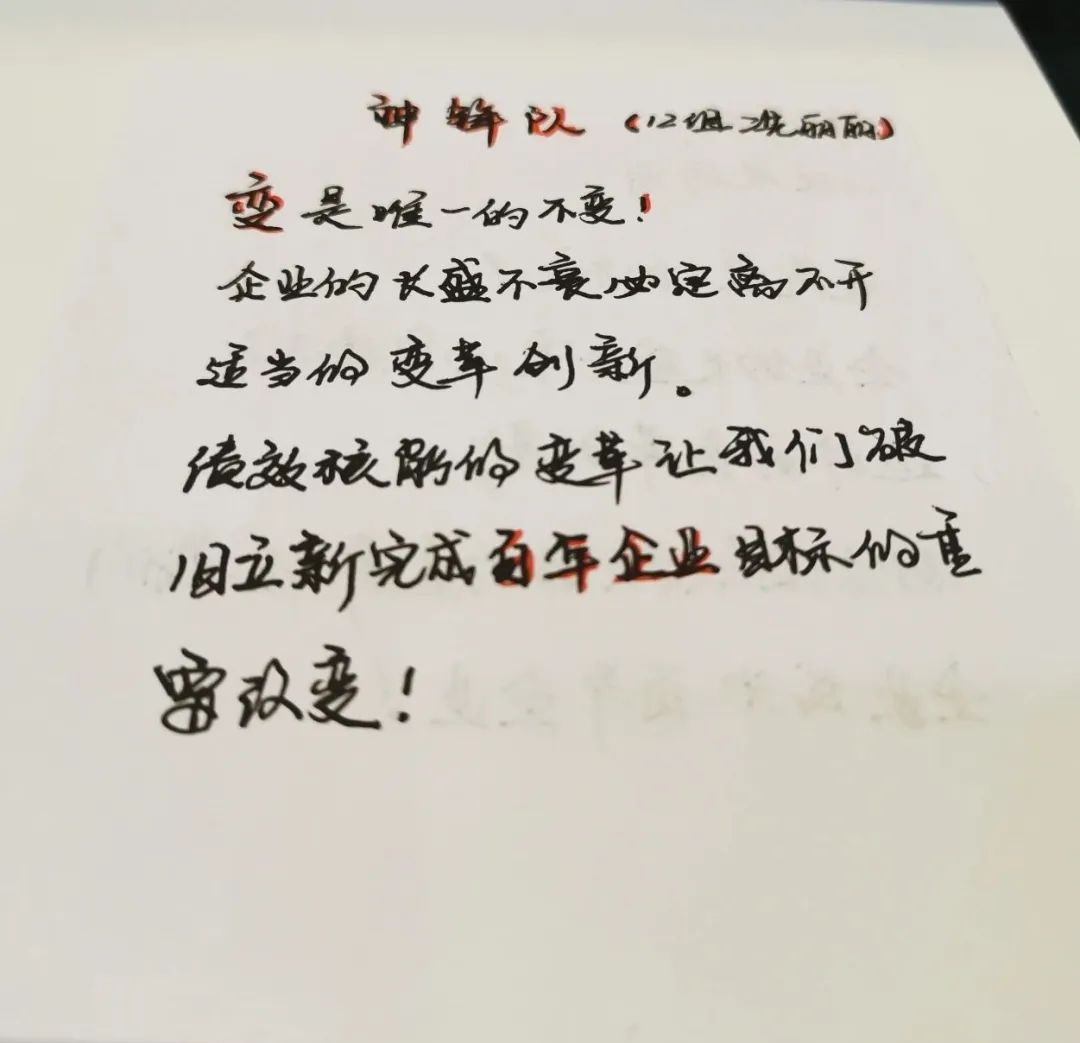 神锋队（12组冼丽丽）
变是唯一的不变！
企业的长盛不衰必定离不开
适当的变革创新。
绩效核酬的变革让我们破
旧立新完成百年企业目标的重
要改变！